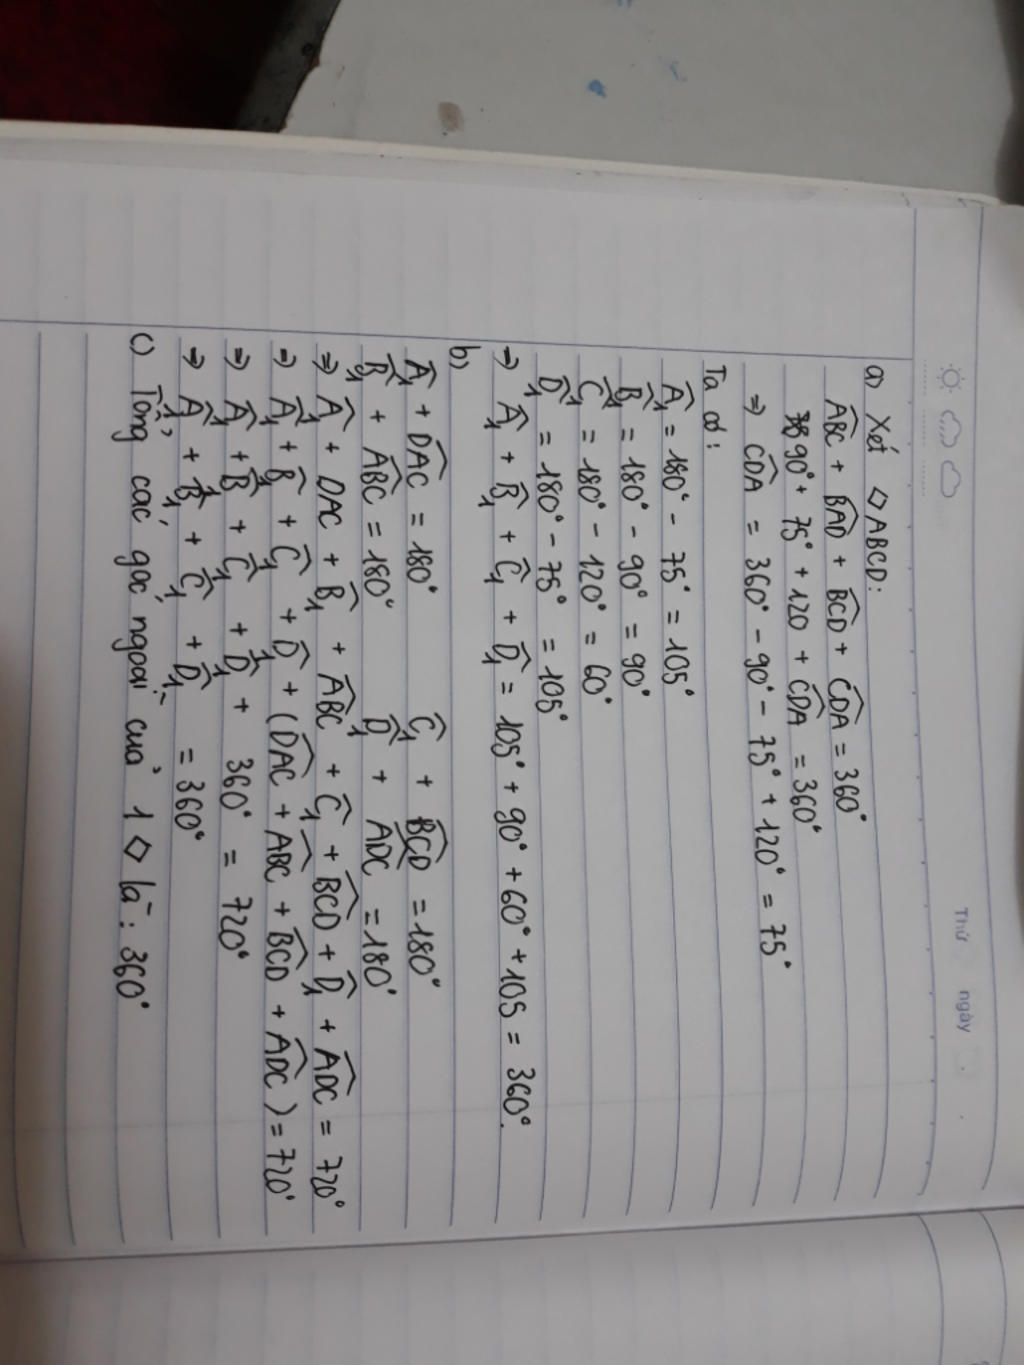 Thứ ngày
a) Xét ◇ABCD:
ABC + BAD + BCD + CDA = 360°
90° + 75° + 120 + CDA = 360°
⇒ CDA = 360° - 90° - 75° + 120° = 75°
Ta có:
A₁ = 180° - 75° = 105°
B₁ = 180° - 90° = 90°
C₁ = 180° - 120° = 60°
D₁ = 180° - 75° = 105°
⇒ A₁ + B₁ + C₁ + D₁ = 105° + 90° + 60° + 105 = 360°.
b)
A₁ + DAC = 180° C₁ + BCD = 180°
B₁ + ABC = 180° D + ADC = 180°
⇒ A₁ + DAC + B₁ + ABC + C₁ + BCD + D₁ + ADC = 720°
⇒ A₁ + B₁ + C₁ + D₁ + (DAC + ABC + BCD + ADC) = 720°
⇒ A₁ + B₁ + C₁ + D₁ + 360° = 720°
⇒ A₁ + B₁ + C₁ + D₁ = 360°
c) Tổng các góc ngoài của 1 ◇ là: 360°